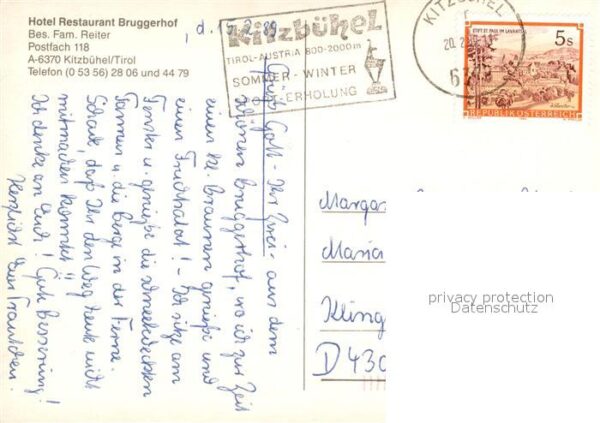 Hotel Restaurant Bruggerhof
Bes. Fam. Reiter
Postfach 118
A-6370 Kitzbühel/Tirol
Telefon (0 53 56) 28 06 und 44 79
, d. 19.2.89
Kitzbühel
TIROL-AUSTRIA 800-2000m
SOMMER-WINTER
ERHOLUNG
KITZBÜHEL
20. 2.
STIFT ST. PAUL IM LAVANTTAL
5s
REPUBLIK ÖSTERREICH
Grüß Gott - Ihr Zwei - aus dem
schönen Bruggerhof, wo ich zur Zeit
einen kl. Braunen genieße und
einen Fruchtsalat! - Ich sitze am
Fenster u. genieße die schneebedeckten
Tannen u. die Berge in der Ferne.
Schade, daß Ihr den Weg heute nicht
mitmachen könnt!
Ich denke an Euch! Gute Besserung!
Herzlichst Euer
Marga
Maria
Kling
D 430
privacy protection
Datenschutz